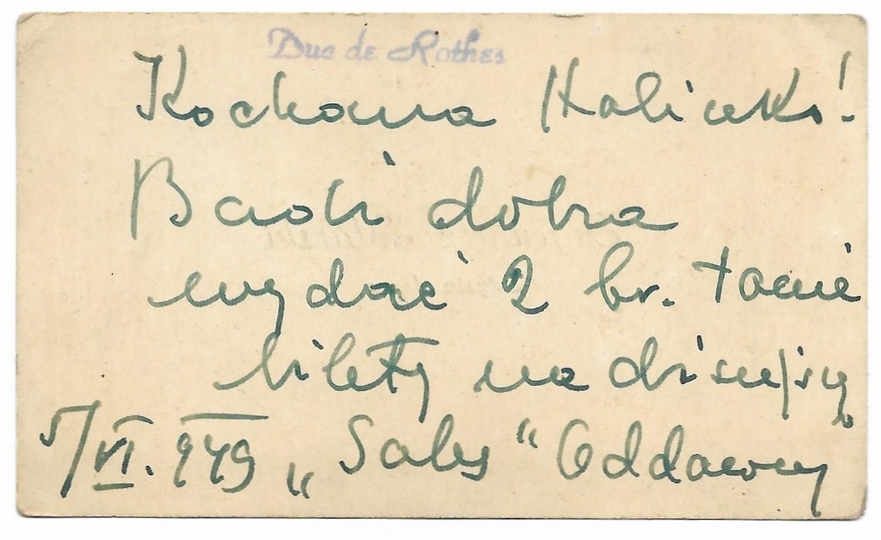 Duc de Rothes
Kochana Halinko!
Bądź dobra
wydać 2 br. tanie
bilety na dzisiejszy
5/VI. 949 „Salus“ Oddawcy